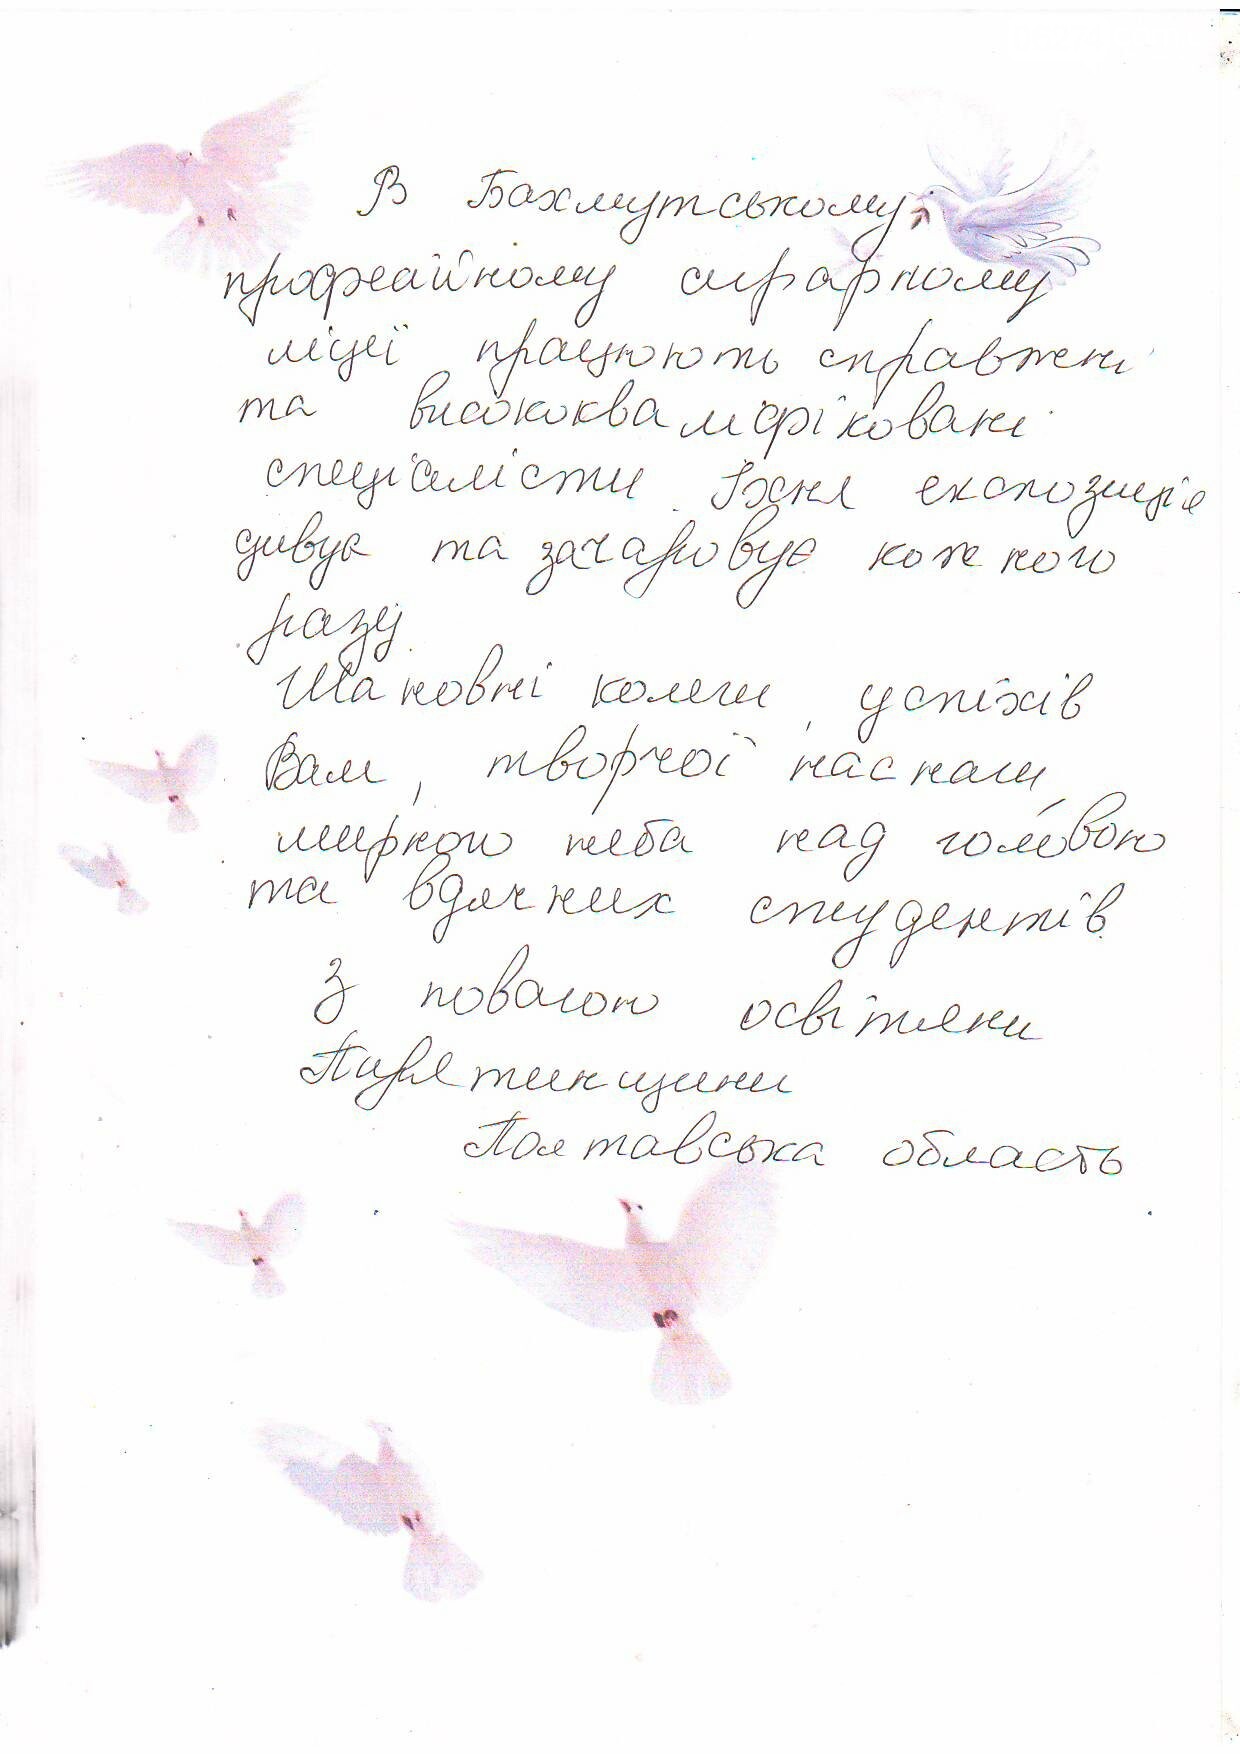 В Бахмутському
професійному аграрному
ліцеї працюють справжні
та висококваліфіковані
спеціалісти. Їхня експозиція
дивує та зачаровує кожного
разу
Шановні колеги, успіхів
Вам, творчої наснаги,
мирного неба над головою
та вдячних студентів.
З повагою освітяни
Пирятинщини
Полтавська область